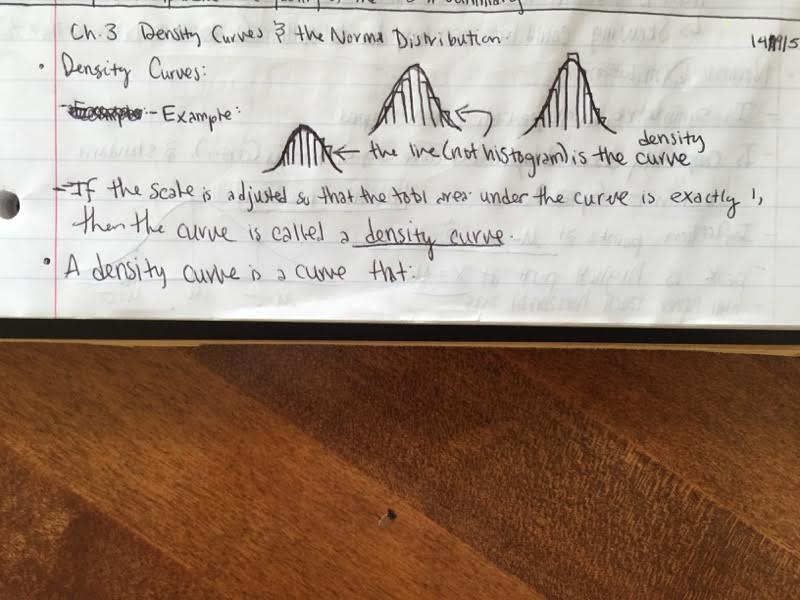 Ch. 3 Density Curves & the Norma Distribution
• Density Curves:
- Example:
← the line (not histogram) is the density curve
- If the scale is adjusted so that the total area under the curve is exactly 1,
then the curve is called a density curve.
• A density curve is a curve that: